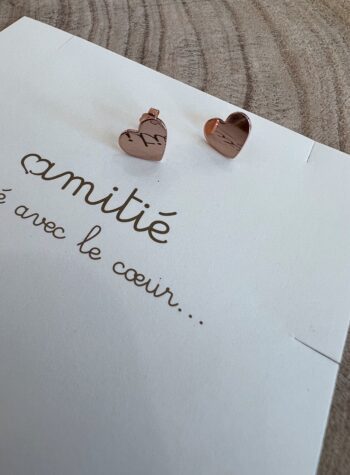 amitié
é avec le cœur...